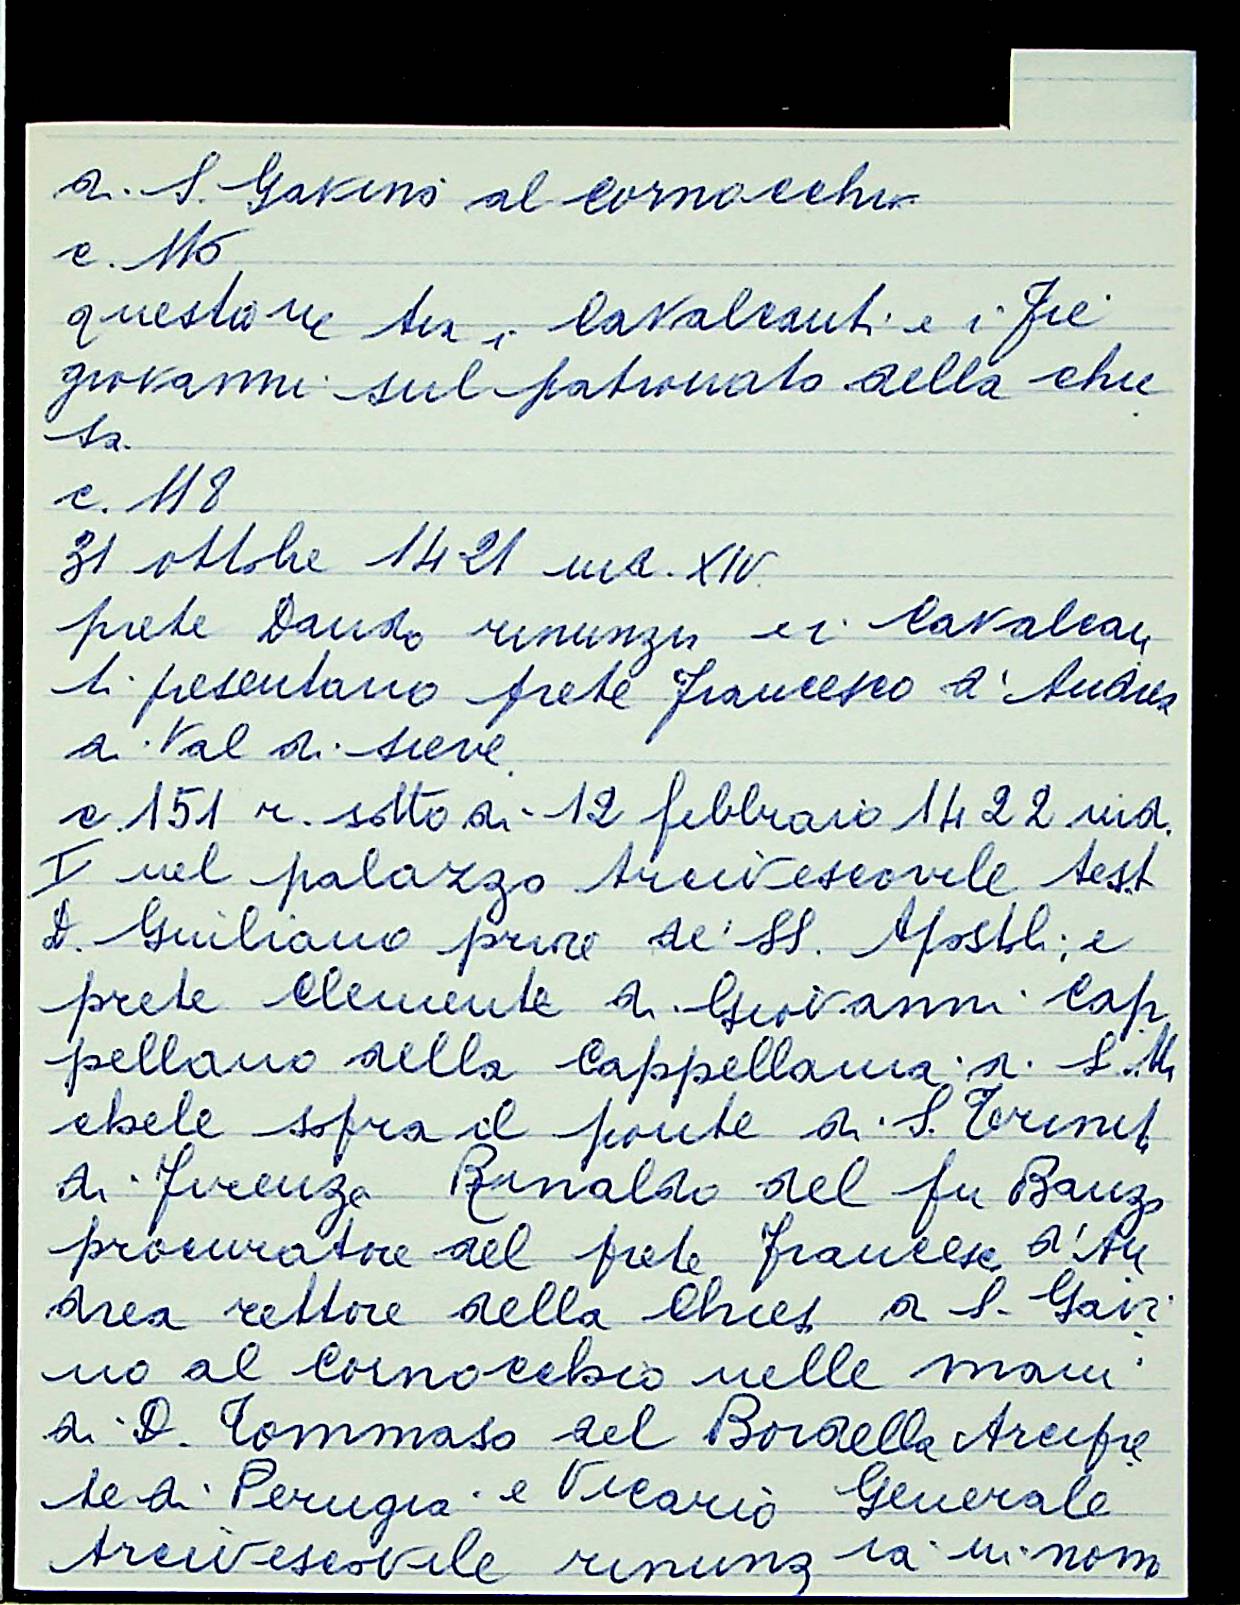 di S. Gavino al Cornocchio
c. 116
questione tra i Cavalcanti e i Fie
giovanni sul patronato della chie
sa.
c. 118
31 ottobre 1421 ind. XIV
prete Dando rinunzia e i Cavalcan
ti presentano prete Francesco d'Andrea
di Val di Sieve
c. 151 r. sotto di 12 febbraio 1422 ind.
I nel palazzo Arcivescovile test
D. Guiliano priore de' SS. Apostoli; e
prete Clemente di Giovanni Cap
pellano della Cappellania di S. Mi
chele sopra il ponte di S. Trinita
di Firenze Rinaldo del fu Banzo
procuratore del prete Francesco d'An
drea rettore della Chiesa di S. Gavi
no al Cornocchio nelle mani
di D. Tommaso del Bordella Arcipre
te di Perugia e Vicario Generale
Arcivescovile rinunzia in nom